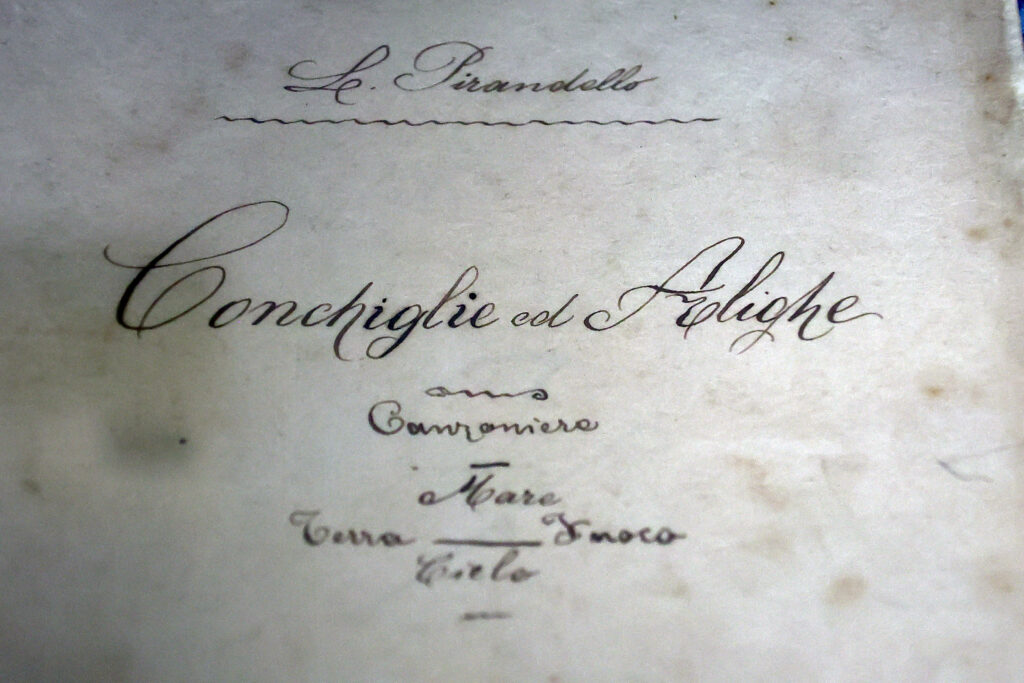 L. Pirandello
Conchiglie ed Alighe
Canzoniere
Mare
Terra — Fuoco
Cielo